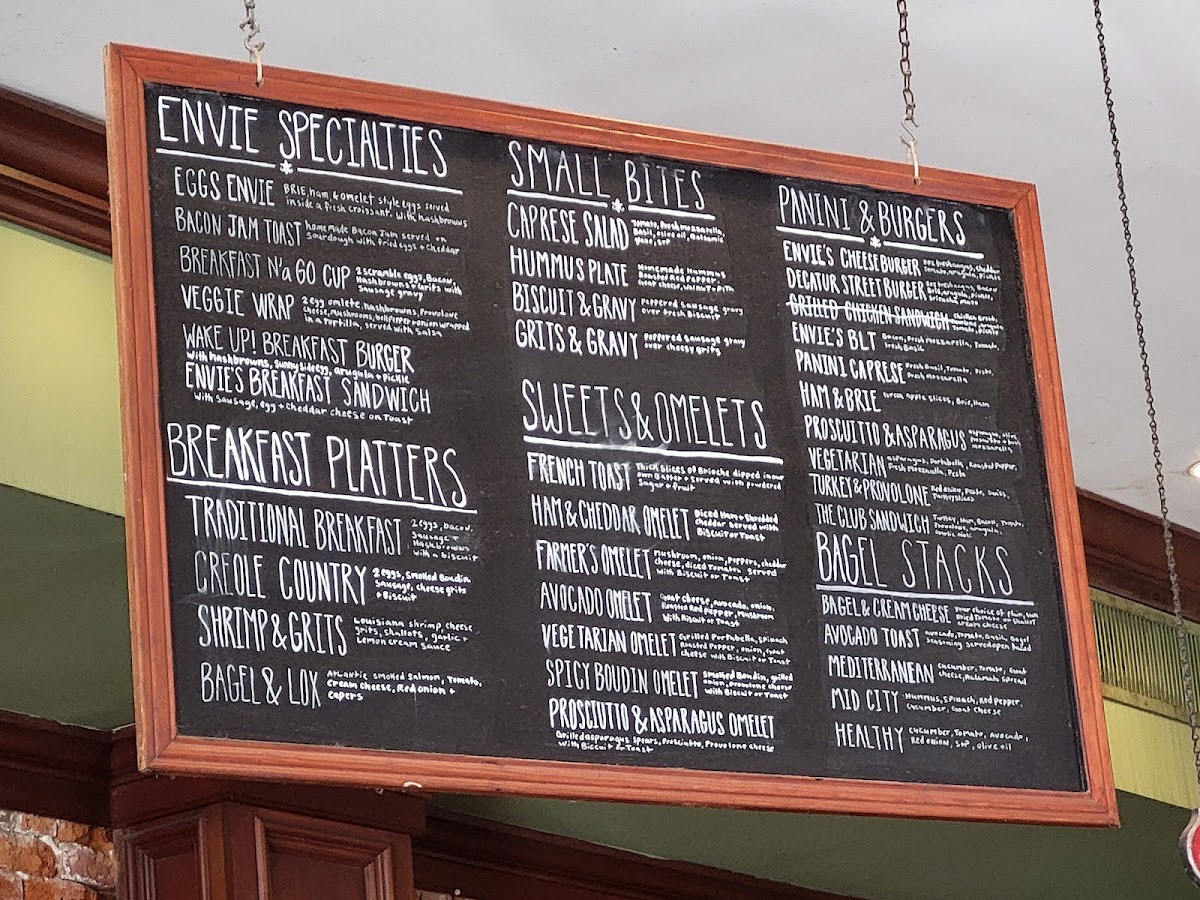 ENVIE SPECIALTIES
EGGS ENVIE BRIE, ham, & omelet style eggs served
inside a fresh croissant. With hashbrowns
BACON JAM TOAST homemade Bacon Jam served on
Sourdough with fried eggs + cheddar
BREAKFAST N'a GO CUP 2 scramble eggs, Bacon,
Hashbrowns + Grits with
Sausage gravy
VEGGIE WRAP 2 egg omlete, hashbrowns, Provolone
cheese, Mushrooms, bell pepper + onion wrapped
in a Tortilla, served with Salsa
WAKE UP! BREAKFAST BURGER
With hashbrowns, sunny side egg, arugula + Pickle
ENVIE'S BREAKFAST SANDWICH
With Sausage, egg + cheddar cheese on Toast
BREAKFAST PLATTERS
TRADITIONAL BREAKFAST 2 eggs, bacon,
Sausage +
Hashbrowns
with a biscuit
CREOLE COUNTRY 2 eggs, smoked Boudin
sausage, cheese grits
+ Biscuit
SHRIMP & GRITS Louisiana shrimp, cheese
grits, shallots, garlic +
Lemon cream sauce
BAGEL & LOX Atlantic smoked Salmon, Tomato,
cream cheese, Red onion +
capers
SMALL BITES
CAPRESE SALAD Tomato, fresh mozzarella,
Basil, olive oil, Balsamic
HUMMUS PLATE Homemade Hummus
Roasted Red pepper,
BISCUIT & GRAVY Peppered Sausage gravy
over fresh Biscuit
GRITS & GRAVY Peppered sausage gravy
over cheesy grits
SWEETS & OMELETS
FRENCH TOAST Thick Slices of Brioche dipped in our
own Batter + Served with powdered
Sugar + fruit
HAM & CHEDDAR OMELET Diced Ham + Shredded
Cheddar served with
Biscuit or Toast
FARMER'S OMELET Mushroom, onion, peppers, cheddar
cheese, diced Tomato served
with Biscuit or Toast
AVOCADO OMELET Goat cheese, avocado, onion,
Roasted Red pepper, Mushroom
With Biscuit or Toast
VEGETARIAN OMELET Grilled Portabella, spinach
Roasted Pepper, onion, Goat
cheese with Biscuit or Toast
SPICY BOUDIN OMELET Smoked Boudin, grilled
onion, provolone cheese
with Biscuit or Toast
PROSCIUTTO & ASPARAGUS OMELET
Grilled asparagus spears, Prosciutto, Provolone cheese
With Biscuit or Toast
PANINI & BURGERS
ENVIE'S CHEESEBURGER cheddar
Tomato, arugula, Pickle
DECATUR STREET BURGER
GRILLED CHICKEN SANDWICH
ENVIE'S BLT Bacon, Fresh Mozzarella, Tomato,
Fresh Basil
PANINI CAPRESE Fresh Basil, Tomato, Pesto,
Fresh Mozzarella
HAM & BRIE Green apple slices, Brie, Ham
PROSCUITTO & ASPARAGUS
mozzarella
VEGETARIAN asparagus, Portabella, Roasted Pepper,
Fresh Mozzarella, Pesto
TURKEY & PROVOLONE Red onion, Pesto, Swiss,
THE CLUB SANDWICH Turkey, Ham, Bacon, Tomato,
Provolone, arugula,
BAGEL STACKS
BAGEL & CREAM CHEESE your choice of plain, Sun
Dried Tomato or Shallot
cream cheese
AVOCADO TOAST avocado, Tomato, Basil, Bagel
seasoning served open faced
MEDITERRANEAN Cucumber, Tomato, Goat
cheese, Kalamata spread
MID CITY Hummus, Spinach, Red pepper,
Cucumber, Goat Cheese
HEALTHY Cucumber, Tomato, Avocado,
Red onion, S+P, olive oil